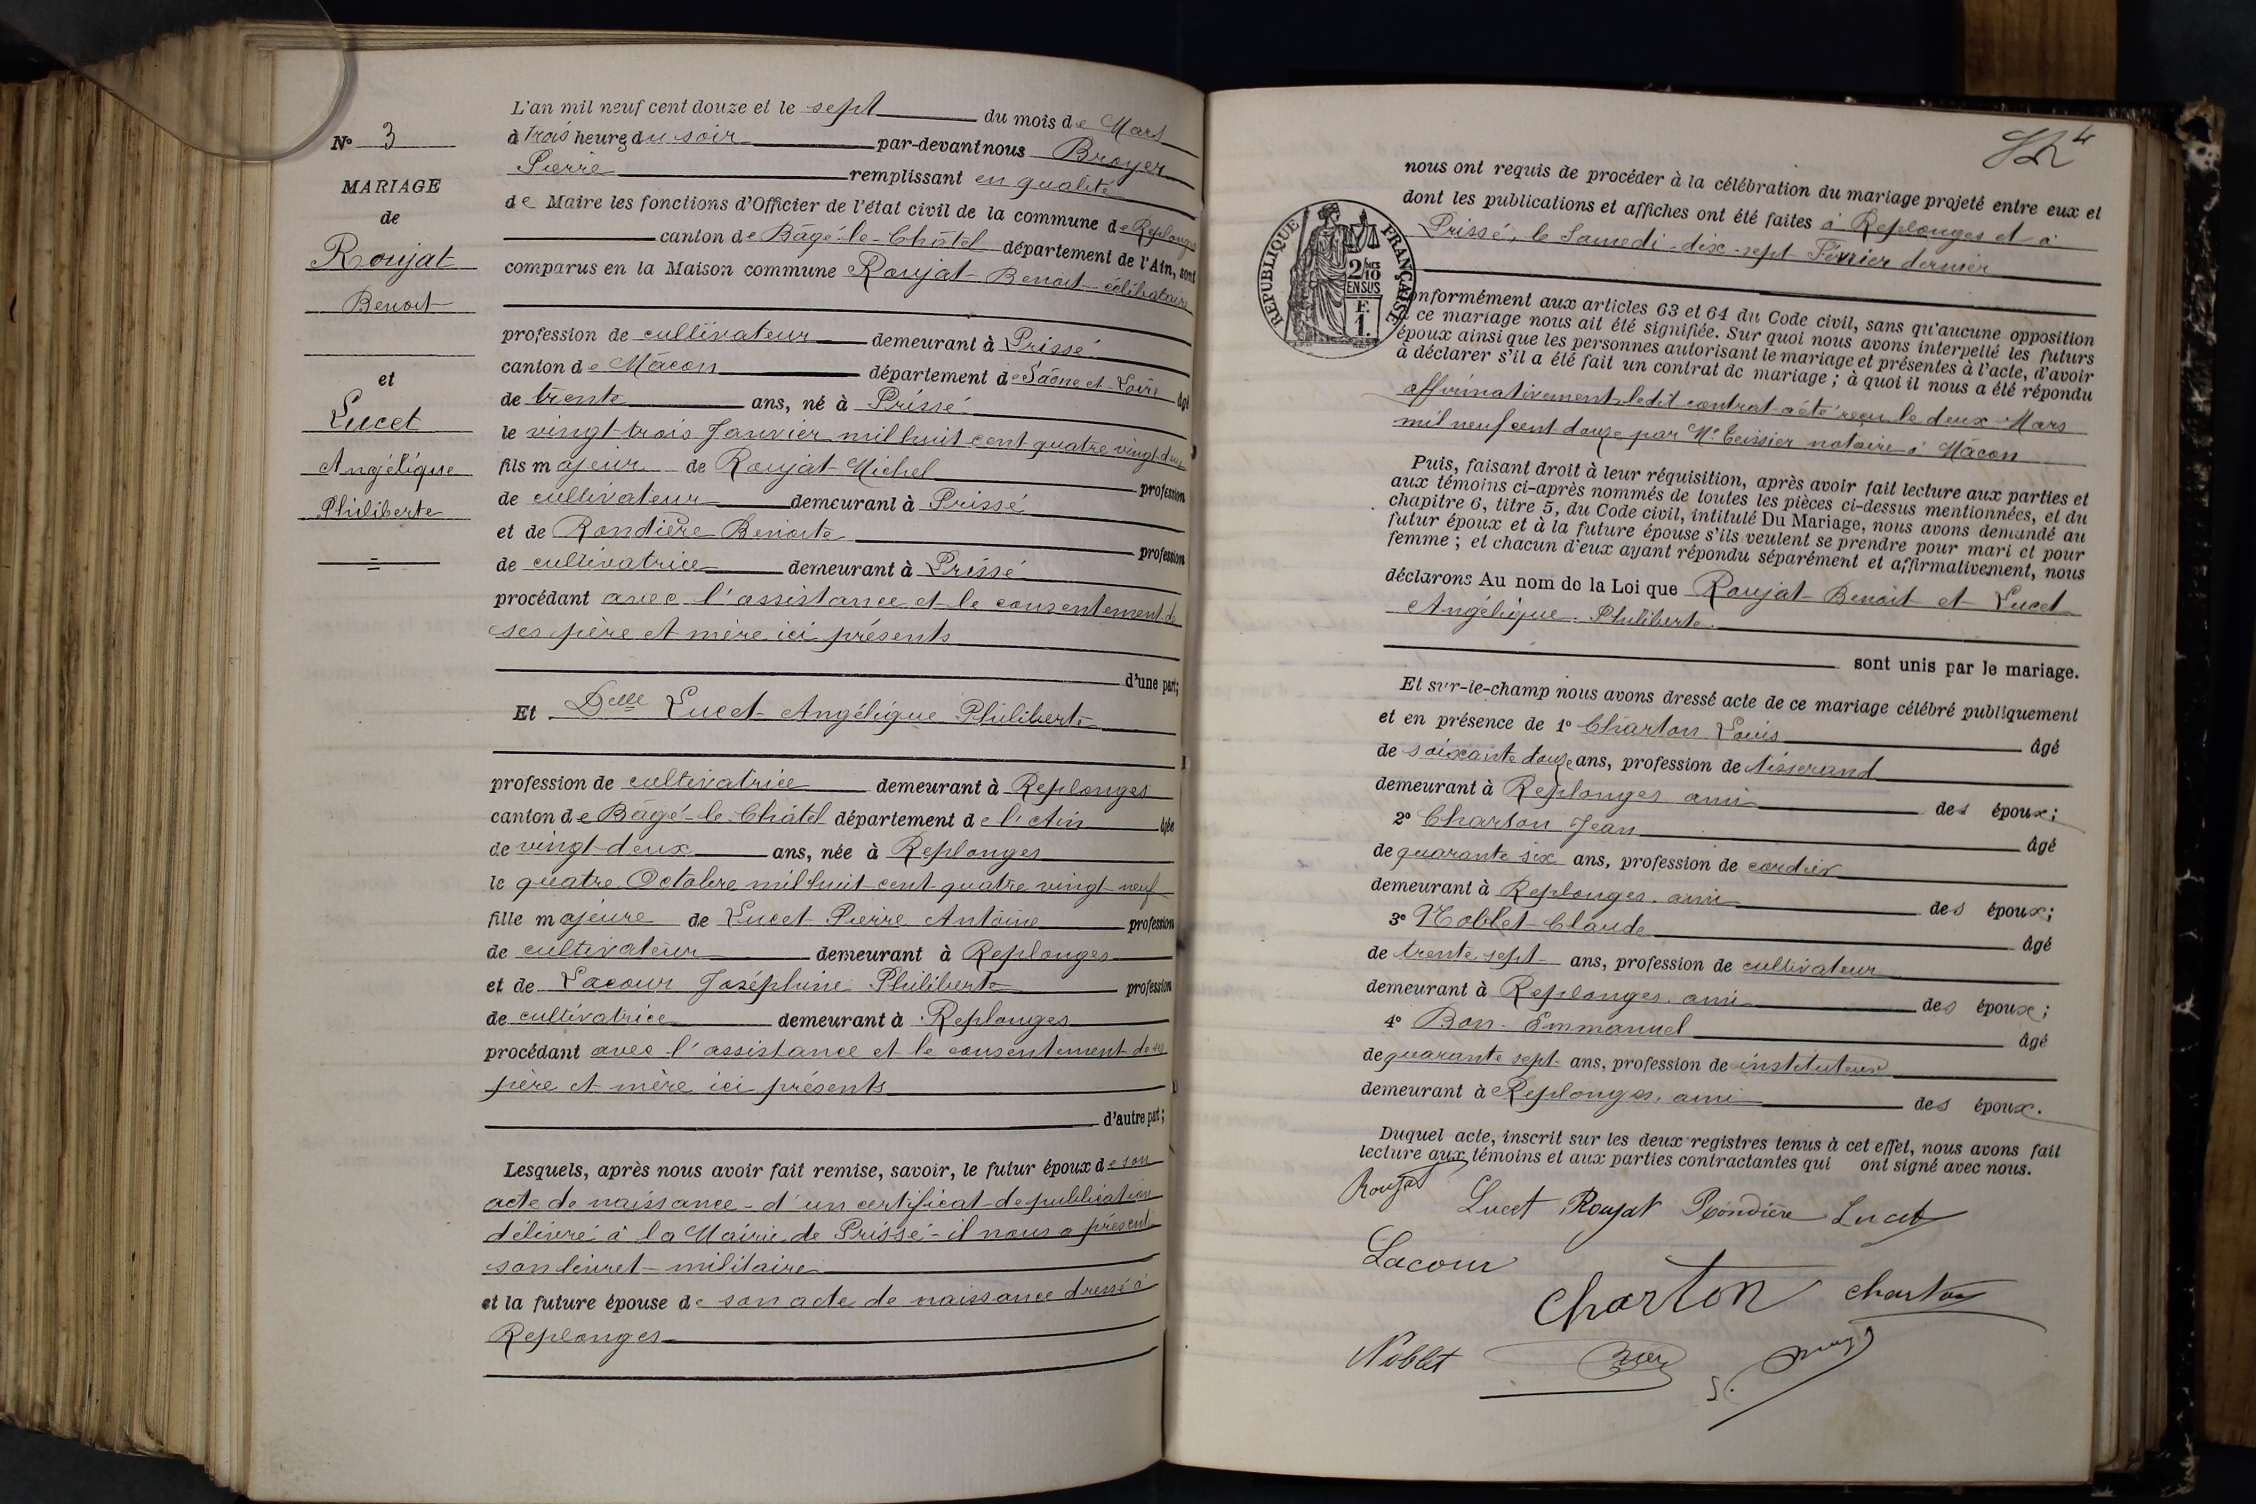 L'an mil neuf cent douze et le sept du mois de Mars
N° 3
à trois heures du soir par-devant nous Broyer
Pierre remplissant en qualité
MARIAGE
de Maire les fonctions d'Officier de l'état civil de la commune de Replonges
de
canton de Bâgé-le-Châtel département de l'Ain, sont
Roujat
comparus en la Maison commune Roujat Benoit célibataire
Benoit
profession de cultivateur demeurant à Prissé
canton de Mâcon département de Saône et Loire âgé
et
de trente ans, né à Prissé
Lucet
le vingt trois Janvier mil huit cent quatre vingt deux
Angélique
fils majeur de Roujat Michel profession
Philiberte
de cultivateur demeurant à Prissé
et de Rondière Benoite profession
de cultivatrice demeurant à Prissé
procédant avec l'assistance et le consentement de
ses père et mère ici présents
d'une part;
Et Delle Lucet Angélique Philiberte
profession de cultivatrice demeurant à Replonges
canton de Bâgé-le-Châtel département de l'Ain âgée
de vingt-deux ans, née à Replonges
le quatre Octobre mil huit cent quatre vingt neuf
fille majeure de Lucet Pierre Antoine profession
de cultivateur demeurant à Replonges
et de Lacour Joséphine Philiberte profession
de cultivatrice demeurant à Replonges
procédant avec l'assistance et le consentement de ses
père et mère ici présents
d'autre part;
Lesquels, après nous avoir fait remise, savoir, le futur époux de son
acte de naissance - d'un certificat de publication
délivré à la Mairie de Prissé - il nous a présenté
son livret militaire
et la future épouse de son acte de naissance dressé à
Replonges
4
nous ont requis de procéder à la célébration du mariage projeté entre eux et
dont les publications et affiches ont été faites à Replonges et à
Prissé, le Samedi dix-sept Février dernier
RÉPUBLIQUE FRANÇAISE
2/10
EN SUS
F.
1.
onformément aux articles 63 et 64 du Code civil, sans qu'aucune opposition
ce mariage nous ait été signifiée. Sur quoi nous avons interpellé les futurs
époux ainsi que les personnes autorisant le mariage et présentes à l'acte, d'avoir
à déclarer s'il a été fait un contrat de mariage; à quoi il nous a été répondu
affirmativement ledit contrat a été reçu le deux Mars
mil neuf cent douze par Me Teissier notaire à Mâcon
Puis, faisant droit à leur réquisition, après avoir fait lecture aux parties et
aux témoins ci-après nommés de toutes les pièces ci-dessus mentionnées, et du
chapitre 6, titre 5, du Code civil, intitulé Du Mariage, nous avons demandé au
futur époux et à la future épouse s'ils veulent se prendre pour mari et pour
femme; et chacun d'eux ayant répondu séparément et affirmativement, nous
déclarons Au nom de la Loi que Roujat Benoit et Lucet
Angélique Philiberte
sont unis par le mariage.
Et sur-le-champ nous avons dressé acte de ce mariage célébré publiquement
et en présence de 1° Charton Louis âgé
de soixante douze ans, profession de tisserand
demeurant à Replonges ami des époux;
2° Charton Jean âgé
de quarante six ans, profession de cordier
demeurant à Replonges ami des époux;
3° Noblet Claude âgé
de trente sept ans, profession de cultivateur
demeurant à Replonges ami des époux;
4° Bon Emmanuel âgé
de quarante sept ans, profession de instituteur
demeurant à Replonges ami des époux.
Duquel acte, inscrit sur les deux registres tenus à cet effet, nous avons fait
lecture aux témoins et aux parties contractantes qui ont signé avec nous.
Roujat
Lucet Roujat Rondière Lucet
Lacour
Charton Charton
Noblet